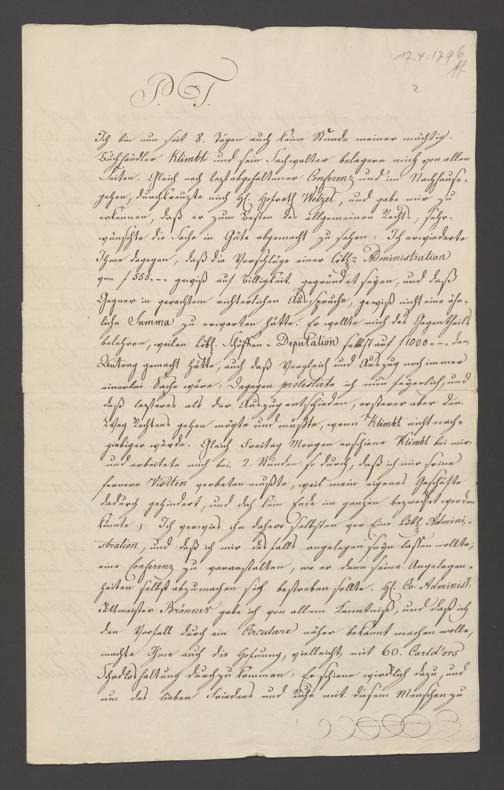 17.4.1796
2
P. T.
Ich bin nun seit 8. Tägen auch keine Stunde meiner mächtig.
Buchhändler Klimbt und sein Sachwalter belagern mich von allen
Seiten. Gleich nach letzt abgehaltener Conferenz und im Nachhause-
gehen, durchkreuzte mich H. Hofrath Wetzel, und gabe mir zu
erkennen, daß er zum Besten des allgemeinen Rechts, sehr
wünschte die Sache in Güte abgemacht zu sehen: Ich erwiederte
Ihme dagegen, daß die Vorschläge einer Löbl. Administration
von f 555.-- gewiß auf Billigkeit gegründet seyen, und daß
Gegner in gerechtem richterlichen Ausspruche, gewiß nicht eine ähn-
liche Summa zu erwarten hätte. Er wollte mich des Gegentheils
belehren, weilen Löbl. Schöffen-Deputation selbst auf f 1000.-- den
Antrag gemacht hätte, auch daß Vergleich und Auszug noch immer
einerlei Sache wäre: dagegen protestirte ich nun feyerlich, und
daß letzteres als der Auszug entschieden, ersterer aber den
Weg Rechtens gehen mögte und müßte, wenn Klimbt nicht nach-
giebiger würde. Gleich Freitag Morgen erschiene Klimbt bei mir
und arbeitete mich bei 2. Stunden so durch, daß ich mir seine
fernere Visiten verbeten mußte, weil mein eigenes Geschäfte
dadurch gehindert, und doch kein Ende im ganzen bezwecket werden
könnte; Ich verwies ihn dahero selbsten vor Eine Löbl. Admini-
stration, und daß ich mir desfalls angelegen seyn lassen wollte,
eine Conferenz zu veranstalten, wo er denn seine Angelegen-
heiten selbst abzumachen sich bestreben sollte. H. Co-Administ.
Rittmeister Brönner gabe ich von allem Kenntniß, und daß ich
den Vorfall durch ein Circulare näher bekannt machen wolle,
machte Ihme auch die Hofnung, vielleicht mit 60. Carld'ors
Schadloshaltung durchzukommen: Er schiene würklich dazu, und
um des lieben Friedens und Ruhe mit diesem Menschen zu